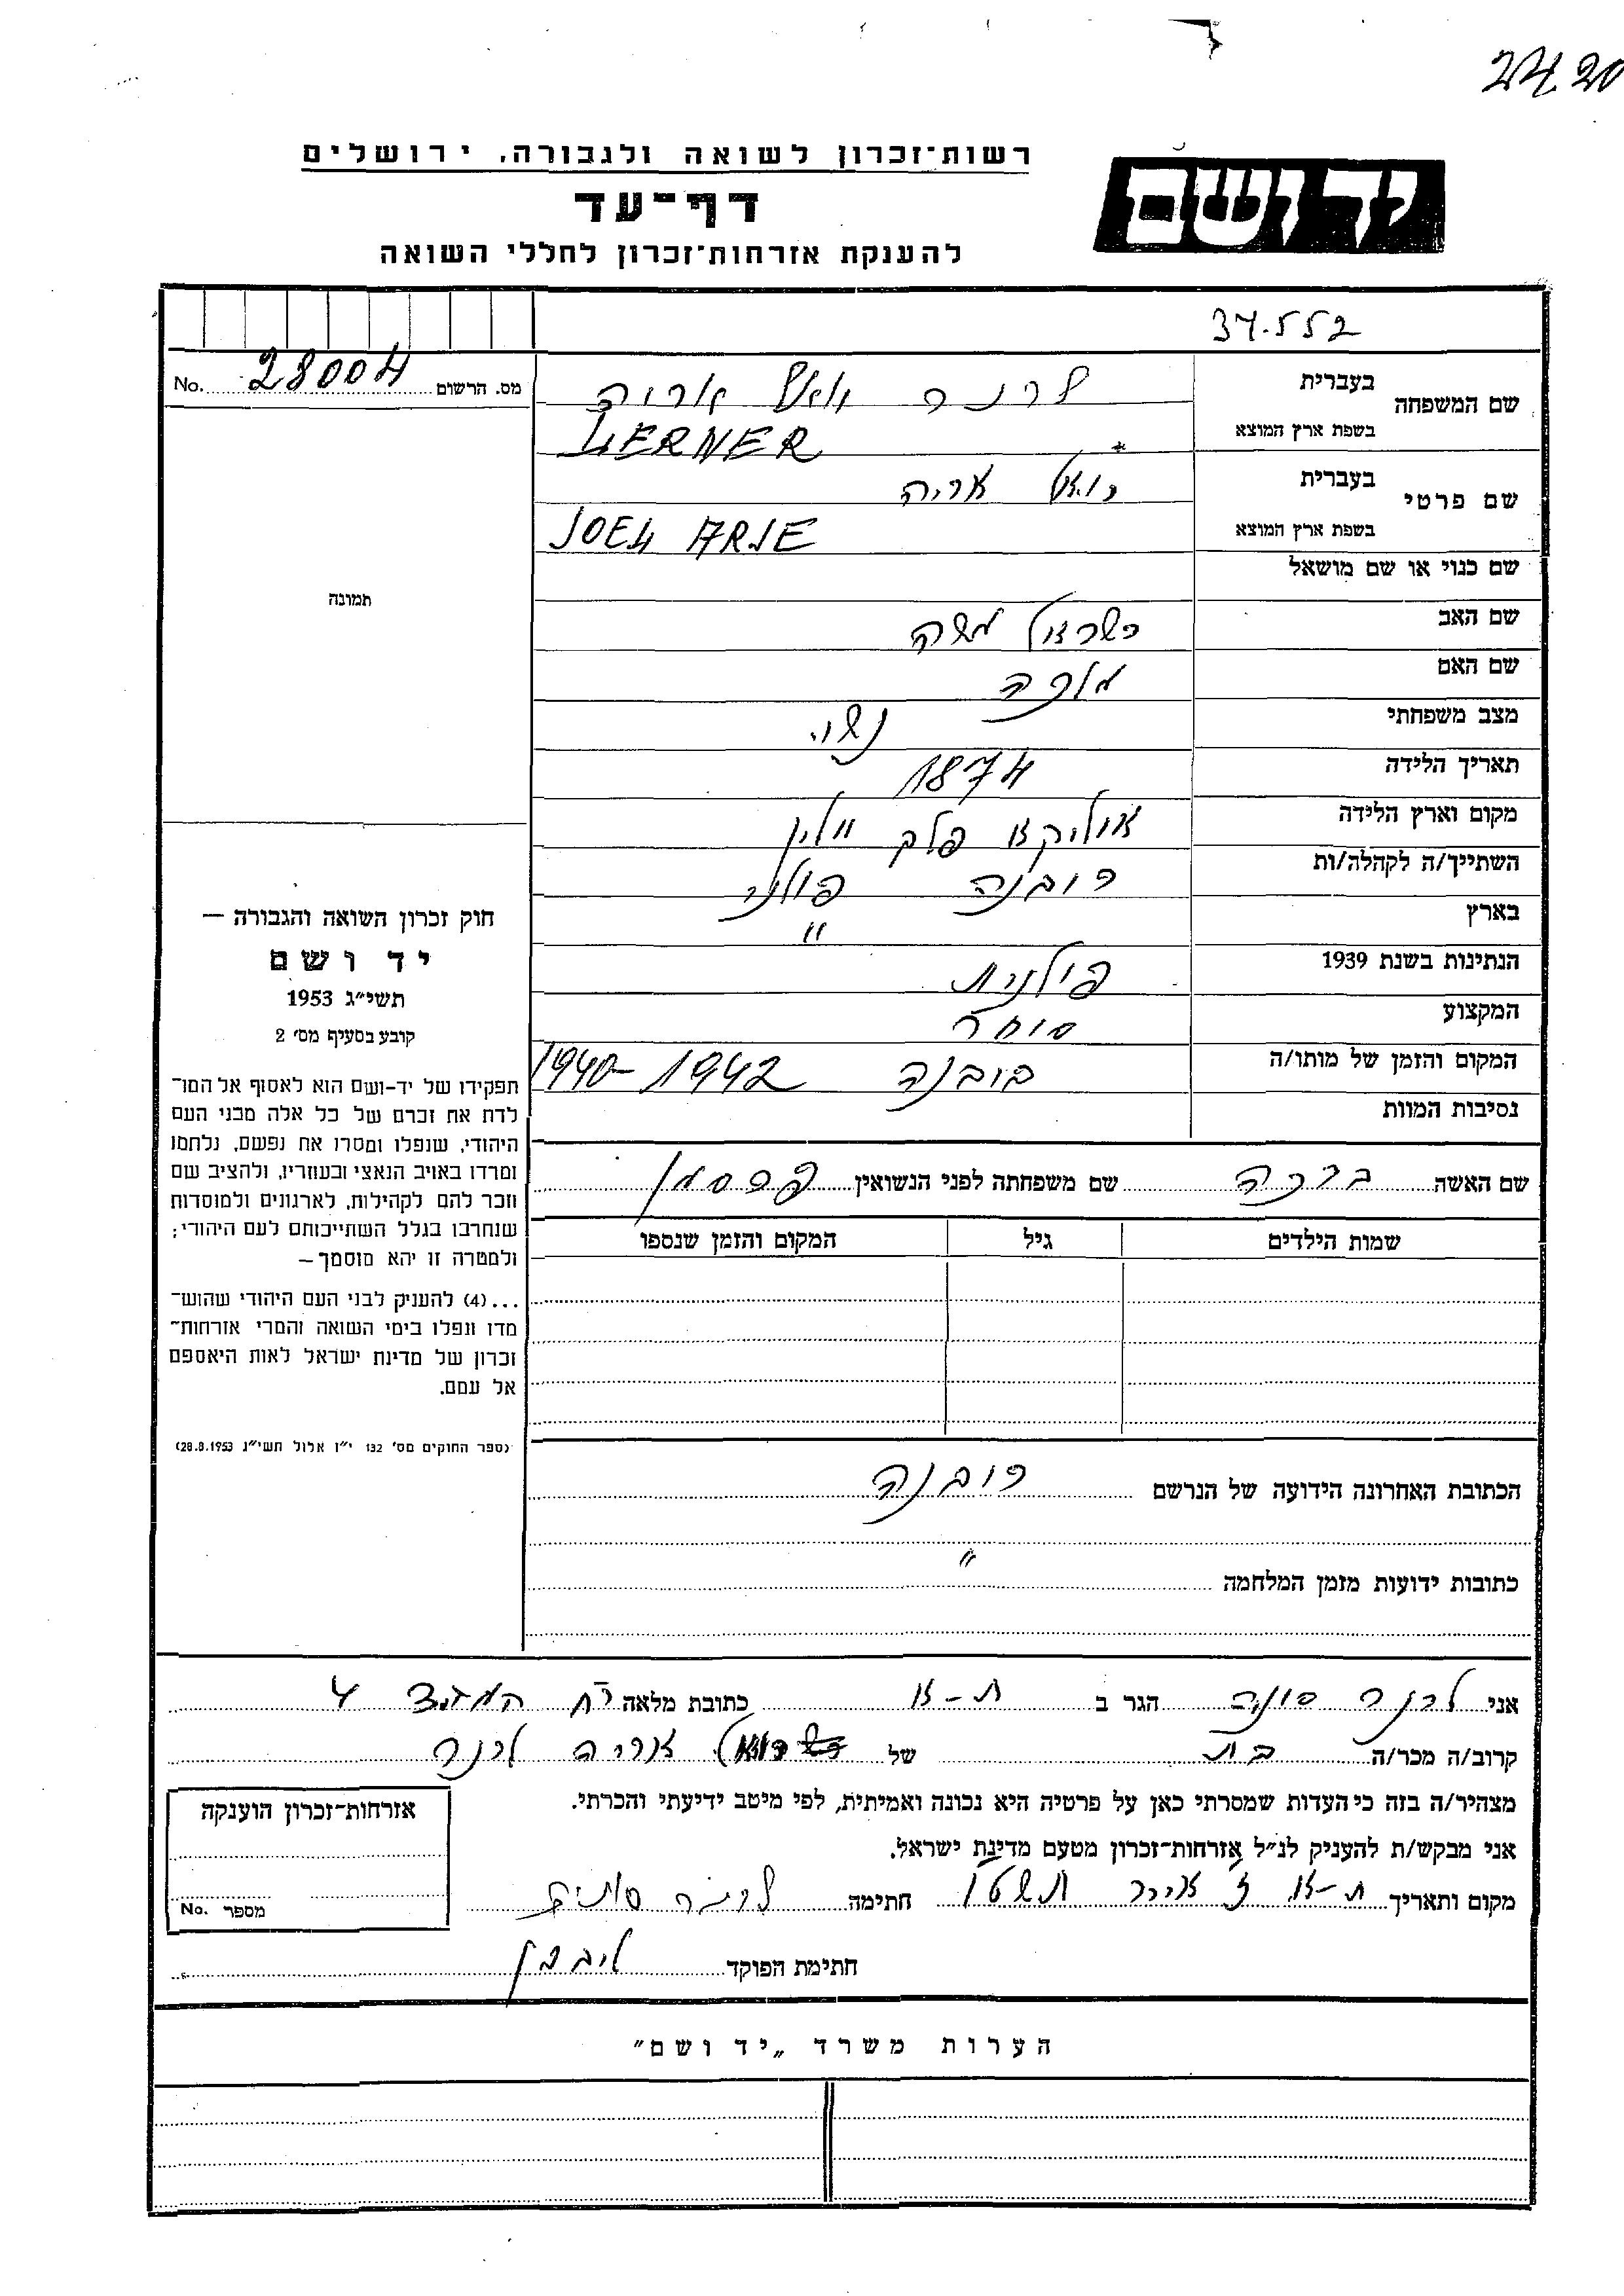 2420
רשות־זכרון לשואה ולגבורה, ירושלים
יד ושם
דף־עד
להענקת אזרחות־זכרון לחללי השואה
34.552
מס. הרשום 28004 No.
שם המשפחה
בעברית לרנר יואל אריה
בשפת ארץ המוצא LERNER
שם פרטי
בעברית יואל אריה
בשפת ארץ המוצא JOEL ARJE
שם כנוי או שם מושאל
שם האב ישראל משה
שם האם מלכה
מצב משפחתי נשוי
תאריך הלידה 1874
מקום וארץ הלידה פלך ווהלין
השתייך/ה לקהלה/ות רובנה פולניה
בארץ "
הנתינות בשנת 1939 פולנית
המקצוע סוחר
המקום והזמן של מותו/ה רובנה 1942 -1940
נסיבות המוות
תמונה
חוק זכרון השואה והגבורה —
יד ושם
תשי״ג 1953
קובע בסעיף מס׳ 2
תפקידו של יד-ושם הוא לאסוף אל המו־
לדת את זכרם של כל אלה מבני העם
היהודי, שנפלו ומסרו את נפשם, נלחמו
ומרדו באויב הנאצי ובעוזריו, ולהציב שם
וזכר להם לקהילות, לארגונים ולמוסדות
שנחרבו בגלל השתייכותם לעם היהודי;
ולמטרה זו יהא מוסמך —
...(4) להעניק לבני העם היהודי שהוש־
מדו ונפלו בימי השואה והמרי אזרחות־
זכרון של מדינת ישראל לאות היאספם
אל עמם.
(ספר החוקים מס׳ 132 י״ז אלול תשי״ג 28.8.1953)
שם האשה ברכה שם משפחתה לפני הנשואין
שמות הילדים גיל המקום והזמן שנספו
הכתובת האחרונה הידועה של הנרשם רובנה
כתובות ידועות מזמן המלחמה "
אני לרנר סוניה הגר ב ת-א כתובת מלאה רח 4
קרוב/ה מכר/ה בת של יואל אריה לרנר
מצהיר/ה בזה כי העדות שמסרתי כאן על פרטיה היא נכונה ואמיתית, לפי מיטב ידיעתי והכרתי.
אני מבקש/ת להעניק לנ״ל אזרחות־זכרון מטעם מדינת ישראל.
מקום ותאריך ת-א ז אייר תשטו חתימה לרנר סוניה
חתימת הפוקד
אזרחות־זכרון הוענקה
מספר No.
הערות משרד „יד ושם"